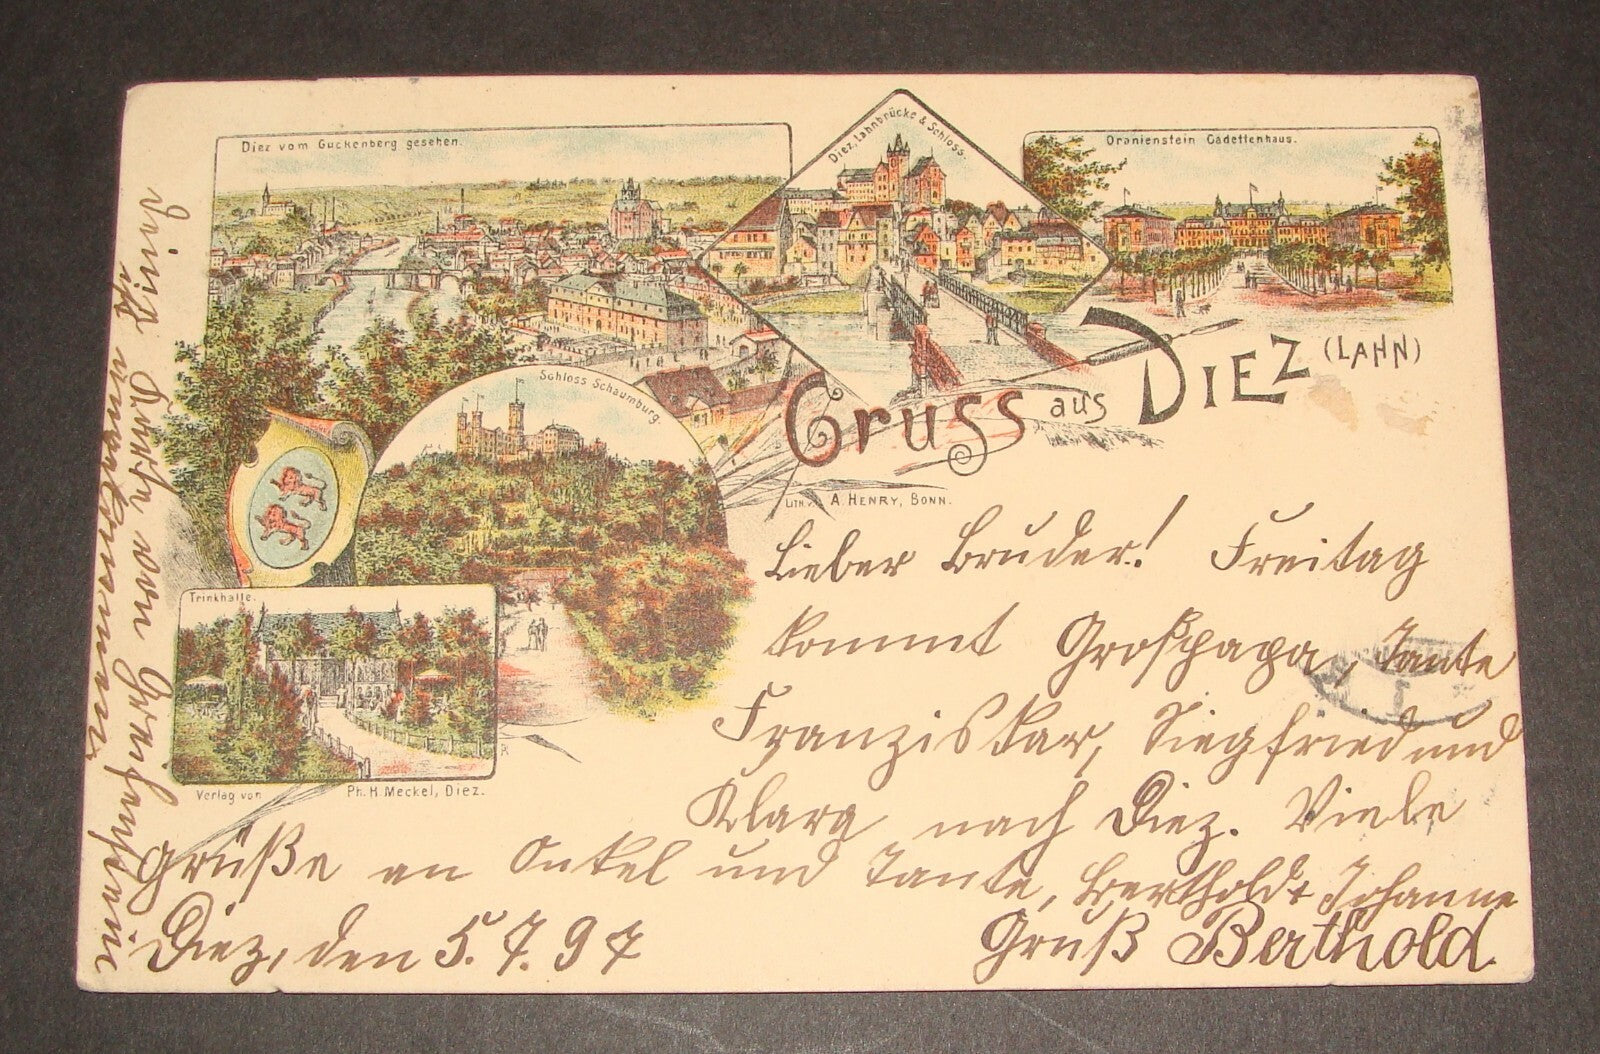 Diez vom Guckenberg gesehen.
Diez, Lahnbrücke & Schloss.
Oranienstein Cadettenhaus.
Gruss aus DIEZ (LAHN)
Schloss Schaumburg.
LITH. v. A. HENRY, BONN.
Trinkhalle.
Verlag von Ph. H. Meckel, Diez.
Lieber Bruder! Freitag
kommt Großpapa, Tante
Franziskar, Siegfried und
Klara nach Diez. Viele
Grüße an Onkel und Tante, Berthold + Johanne
Diez, den 5.7.97
Gruß Berthold
Deine Karte von
ist angekommen